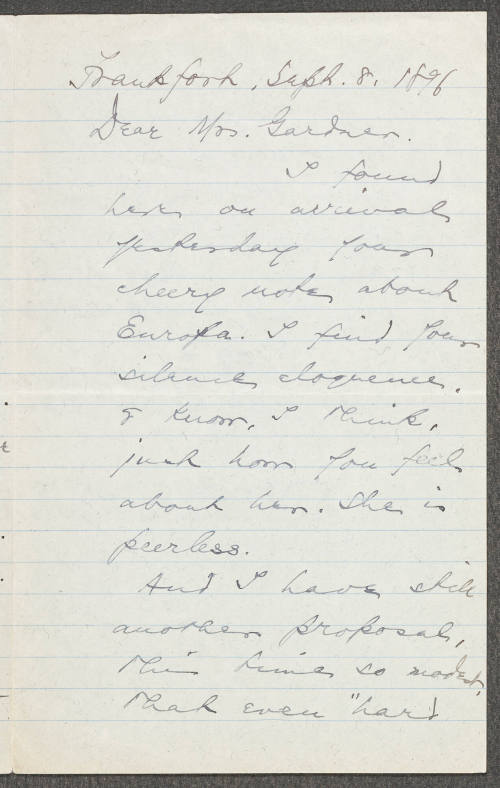 Frankfort, Sept. 8. 1896
Dear Mrs. Gardner.
I found
here on arrival
yesterday your
cheery note about
Europa. I find your
silence eloquence,
& know, I think,
just how you feel
about her. She is
peerless.
And I have still
another proposal,
this time so modest,
that even "hard